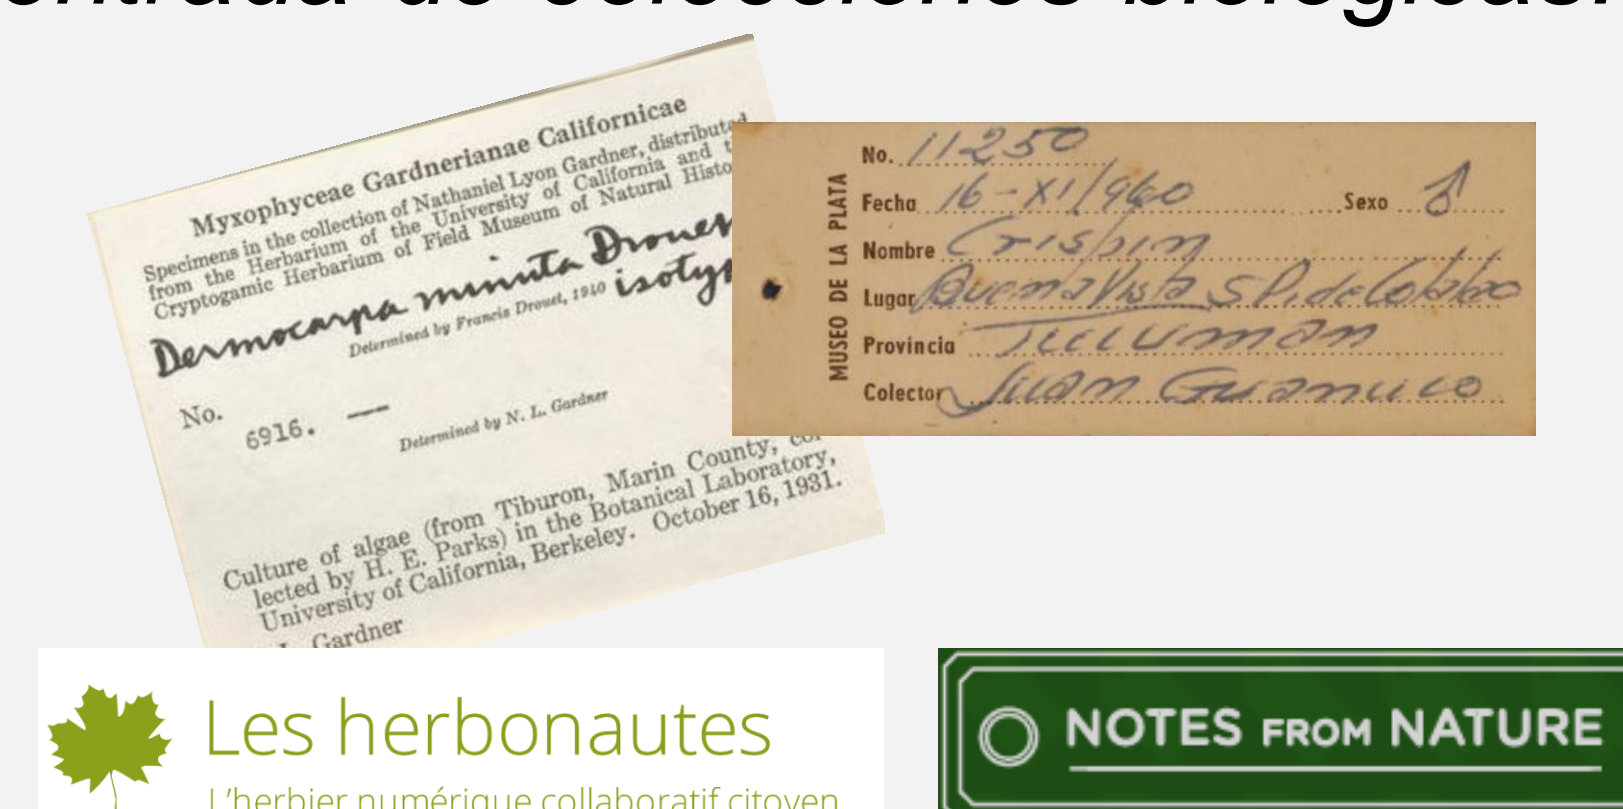 de colecciones biológicas
Myxophyceae Gardnerianae Californicae
Specimens in the collection of Nathaniel Lyon Gardner, distributed
from the Herbarium of the University of California and
Cryptogamic Herbarium of Field Museum of Natural
Dermocarpa minuta
Determined by Francis Drouet, 1940
No.
6916. —
Determined by N. L. Gardner
Culture of algae (from Tiburon, Marin County,
lected by H. E. Parks) in the Botanical Laboratory,
University of California, Berkeley. October 16, 1931.
Gardner
MUSEO DE LA PLATA
No. 11250
Fecha 16-XI/960 Sexo ♂
Nombre Crispin
Lugar Buena Vista S P. de Colalao
Provincia Tucuman
Colector Juan Guanuco
Les herbonautes
L'herbier numérique collaboratif citoyen
NOTES FROM NATURE